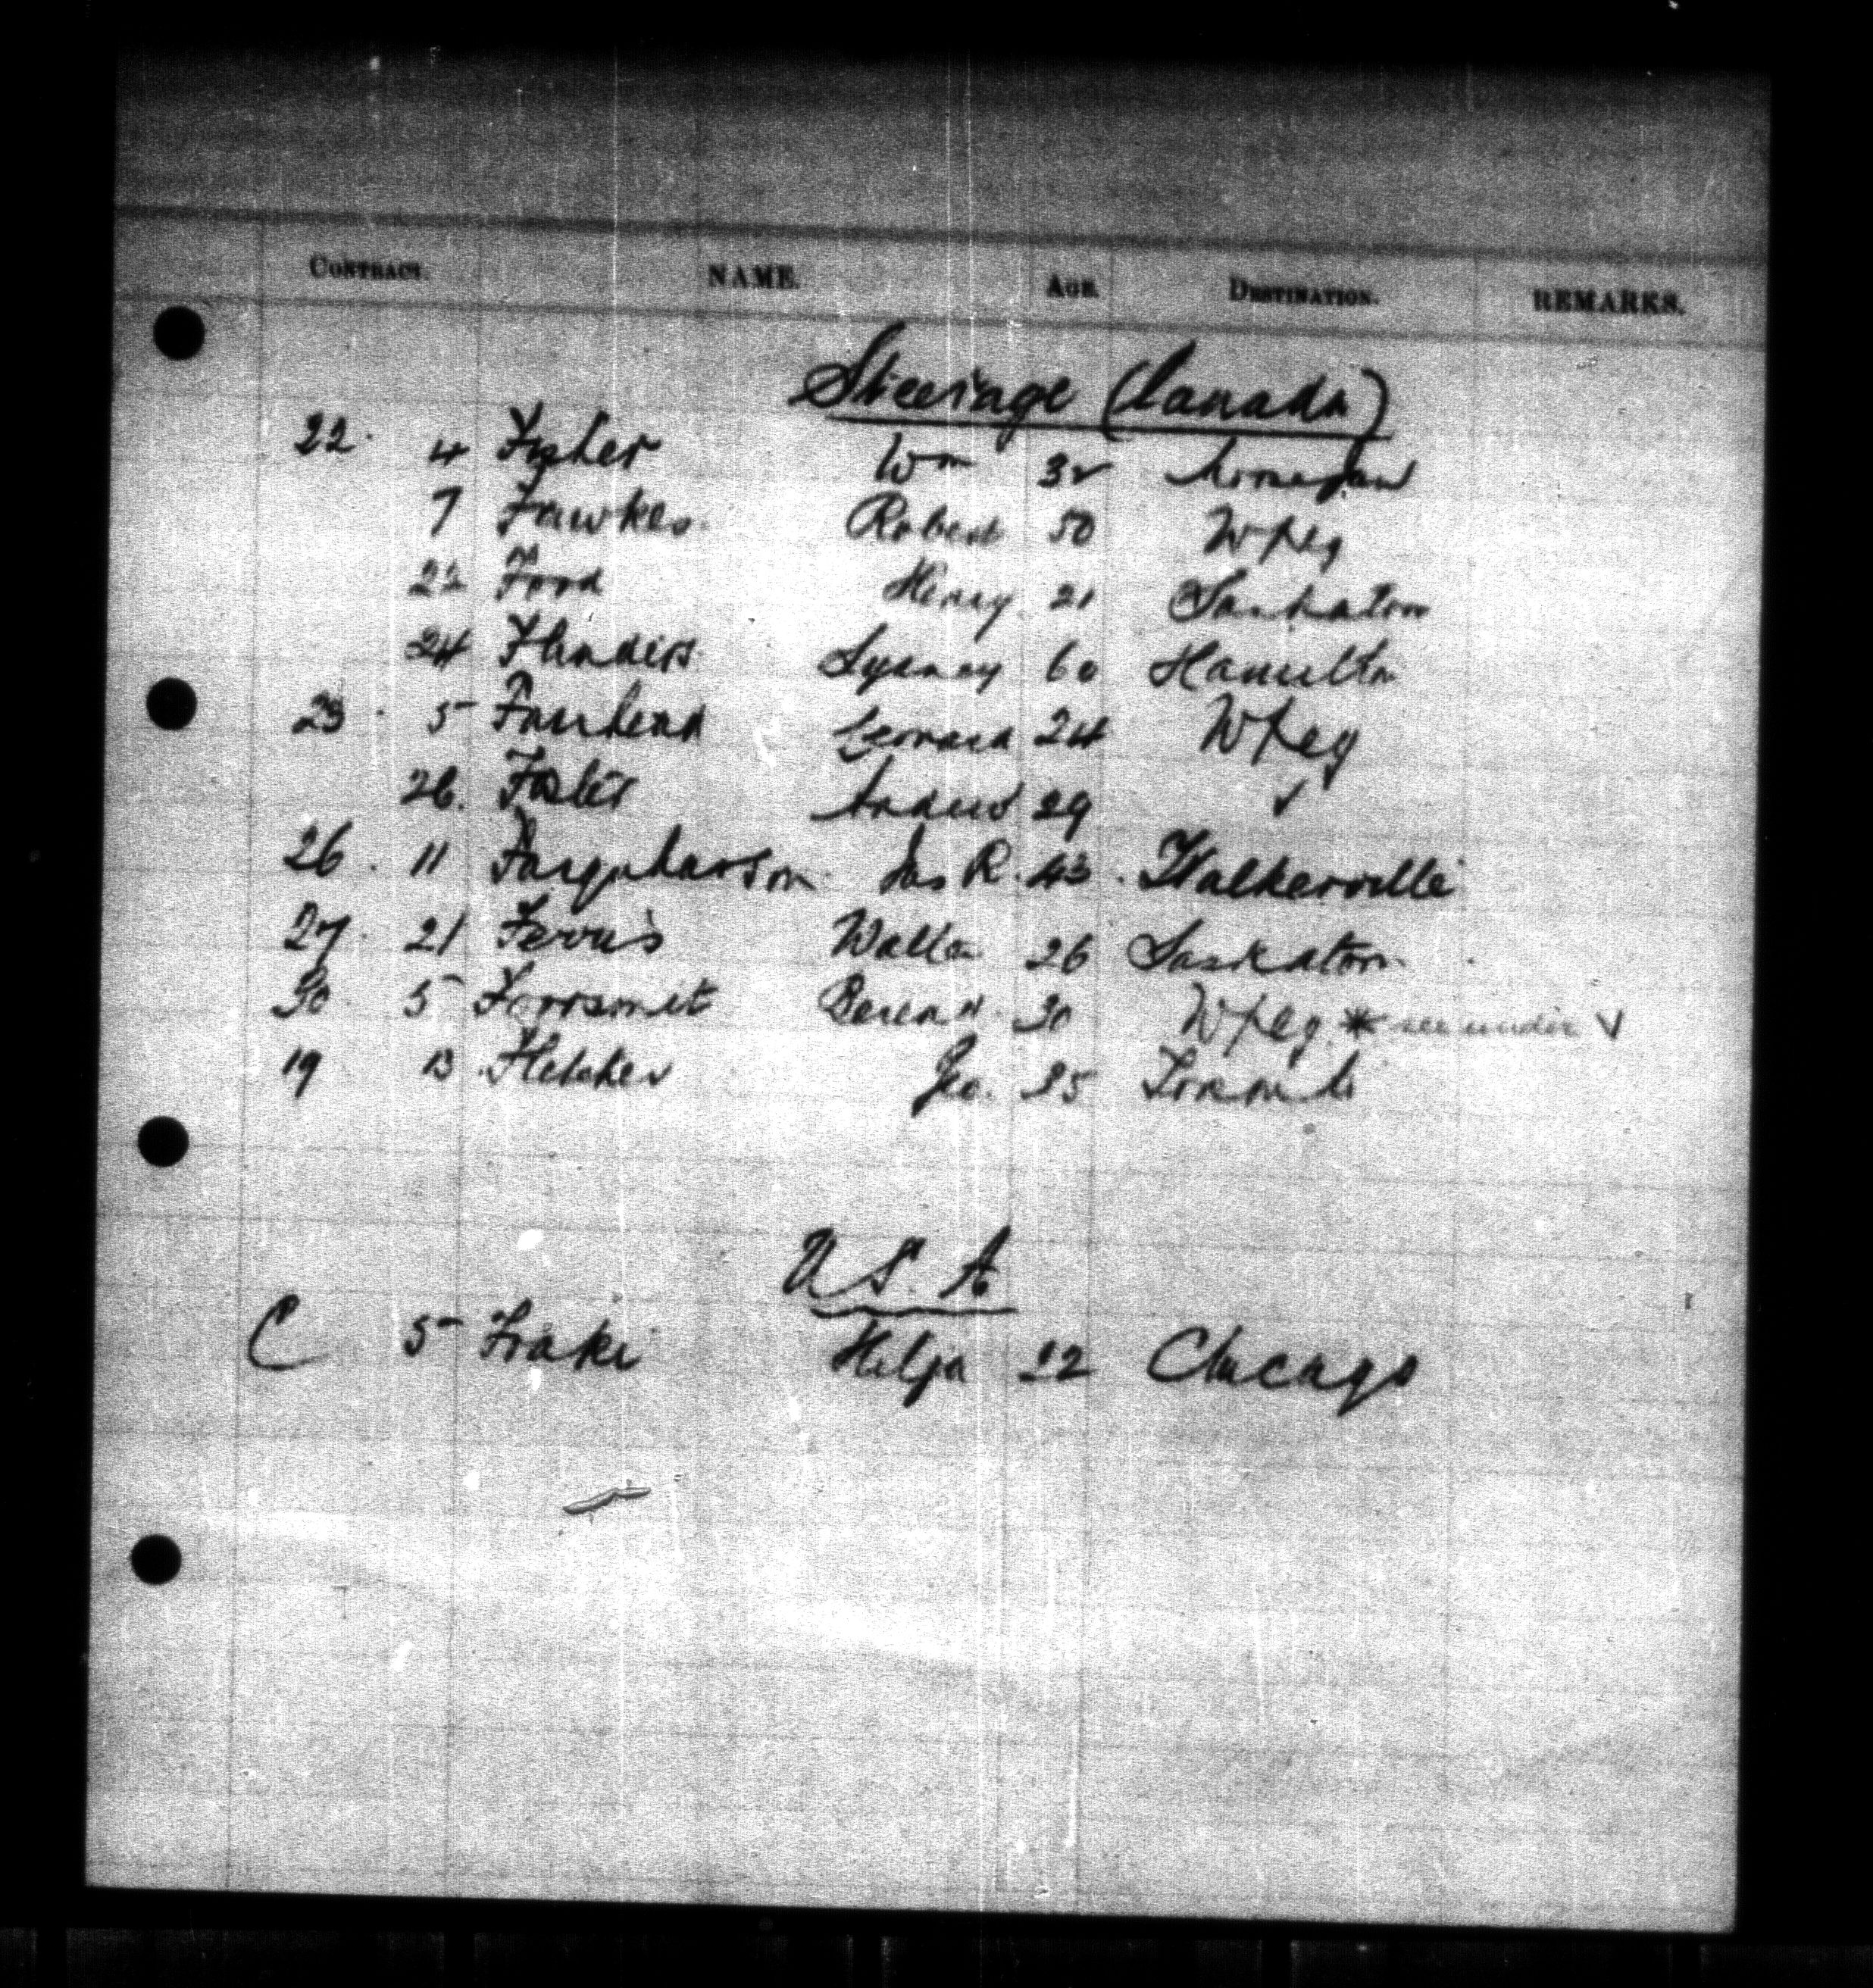 CONTRACT. NAME. AGE. DESTINATION. REMARKS.
Steerage (Canada)
22. 4 Fisher Wm 32
7 Fawkes Robert 50 Wpeg
22 Ford Henry 21 Saskatoon
24 Flinders Sydney 60 Hamilton
23. 5 Fairhead Leonard 24 Wpeg
26. Foster Andrew 29 ✓
26. 11 Farquharson Jas R. 43. Walkerville
27. 21 Ferris Walter 26 Saskatoon
30 5 30 Wpeg * see under V
19 13 Fletcher Geo. 25 Toronto
U.S.A
C 5 Frake Helja 22 Chicago